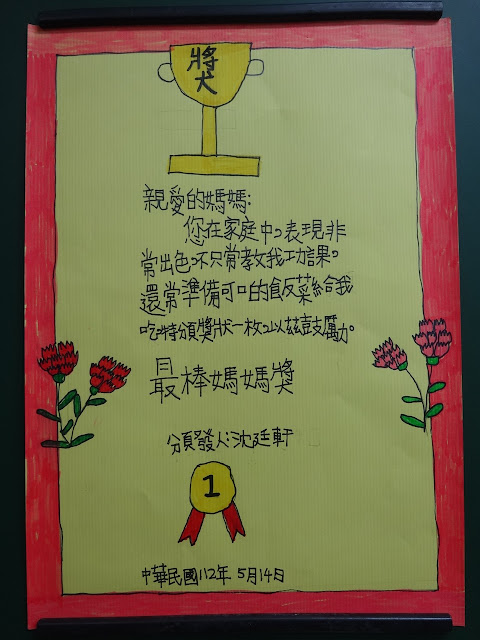 獎
親愛的媽媽:
您在家庭中,表現非
常出色,不只常教我功課。
還常準備可口的飯菜給我
吃,特頒獎狀一枚,以茲鼓勵。
最棒媽媽獎
頒發人:沈廷軒
1
中華民國112年 5月14日